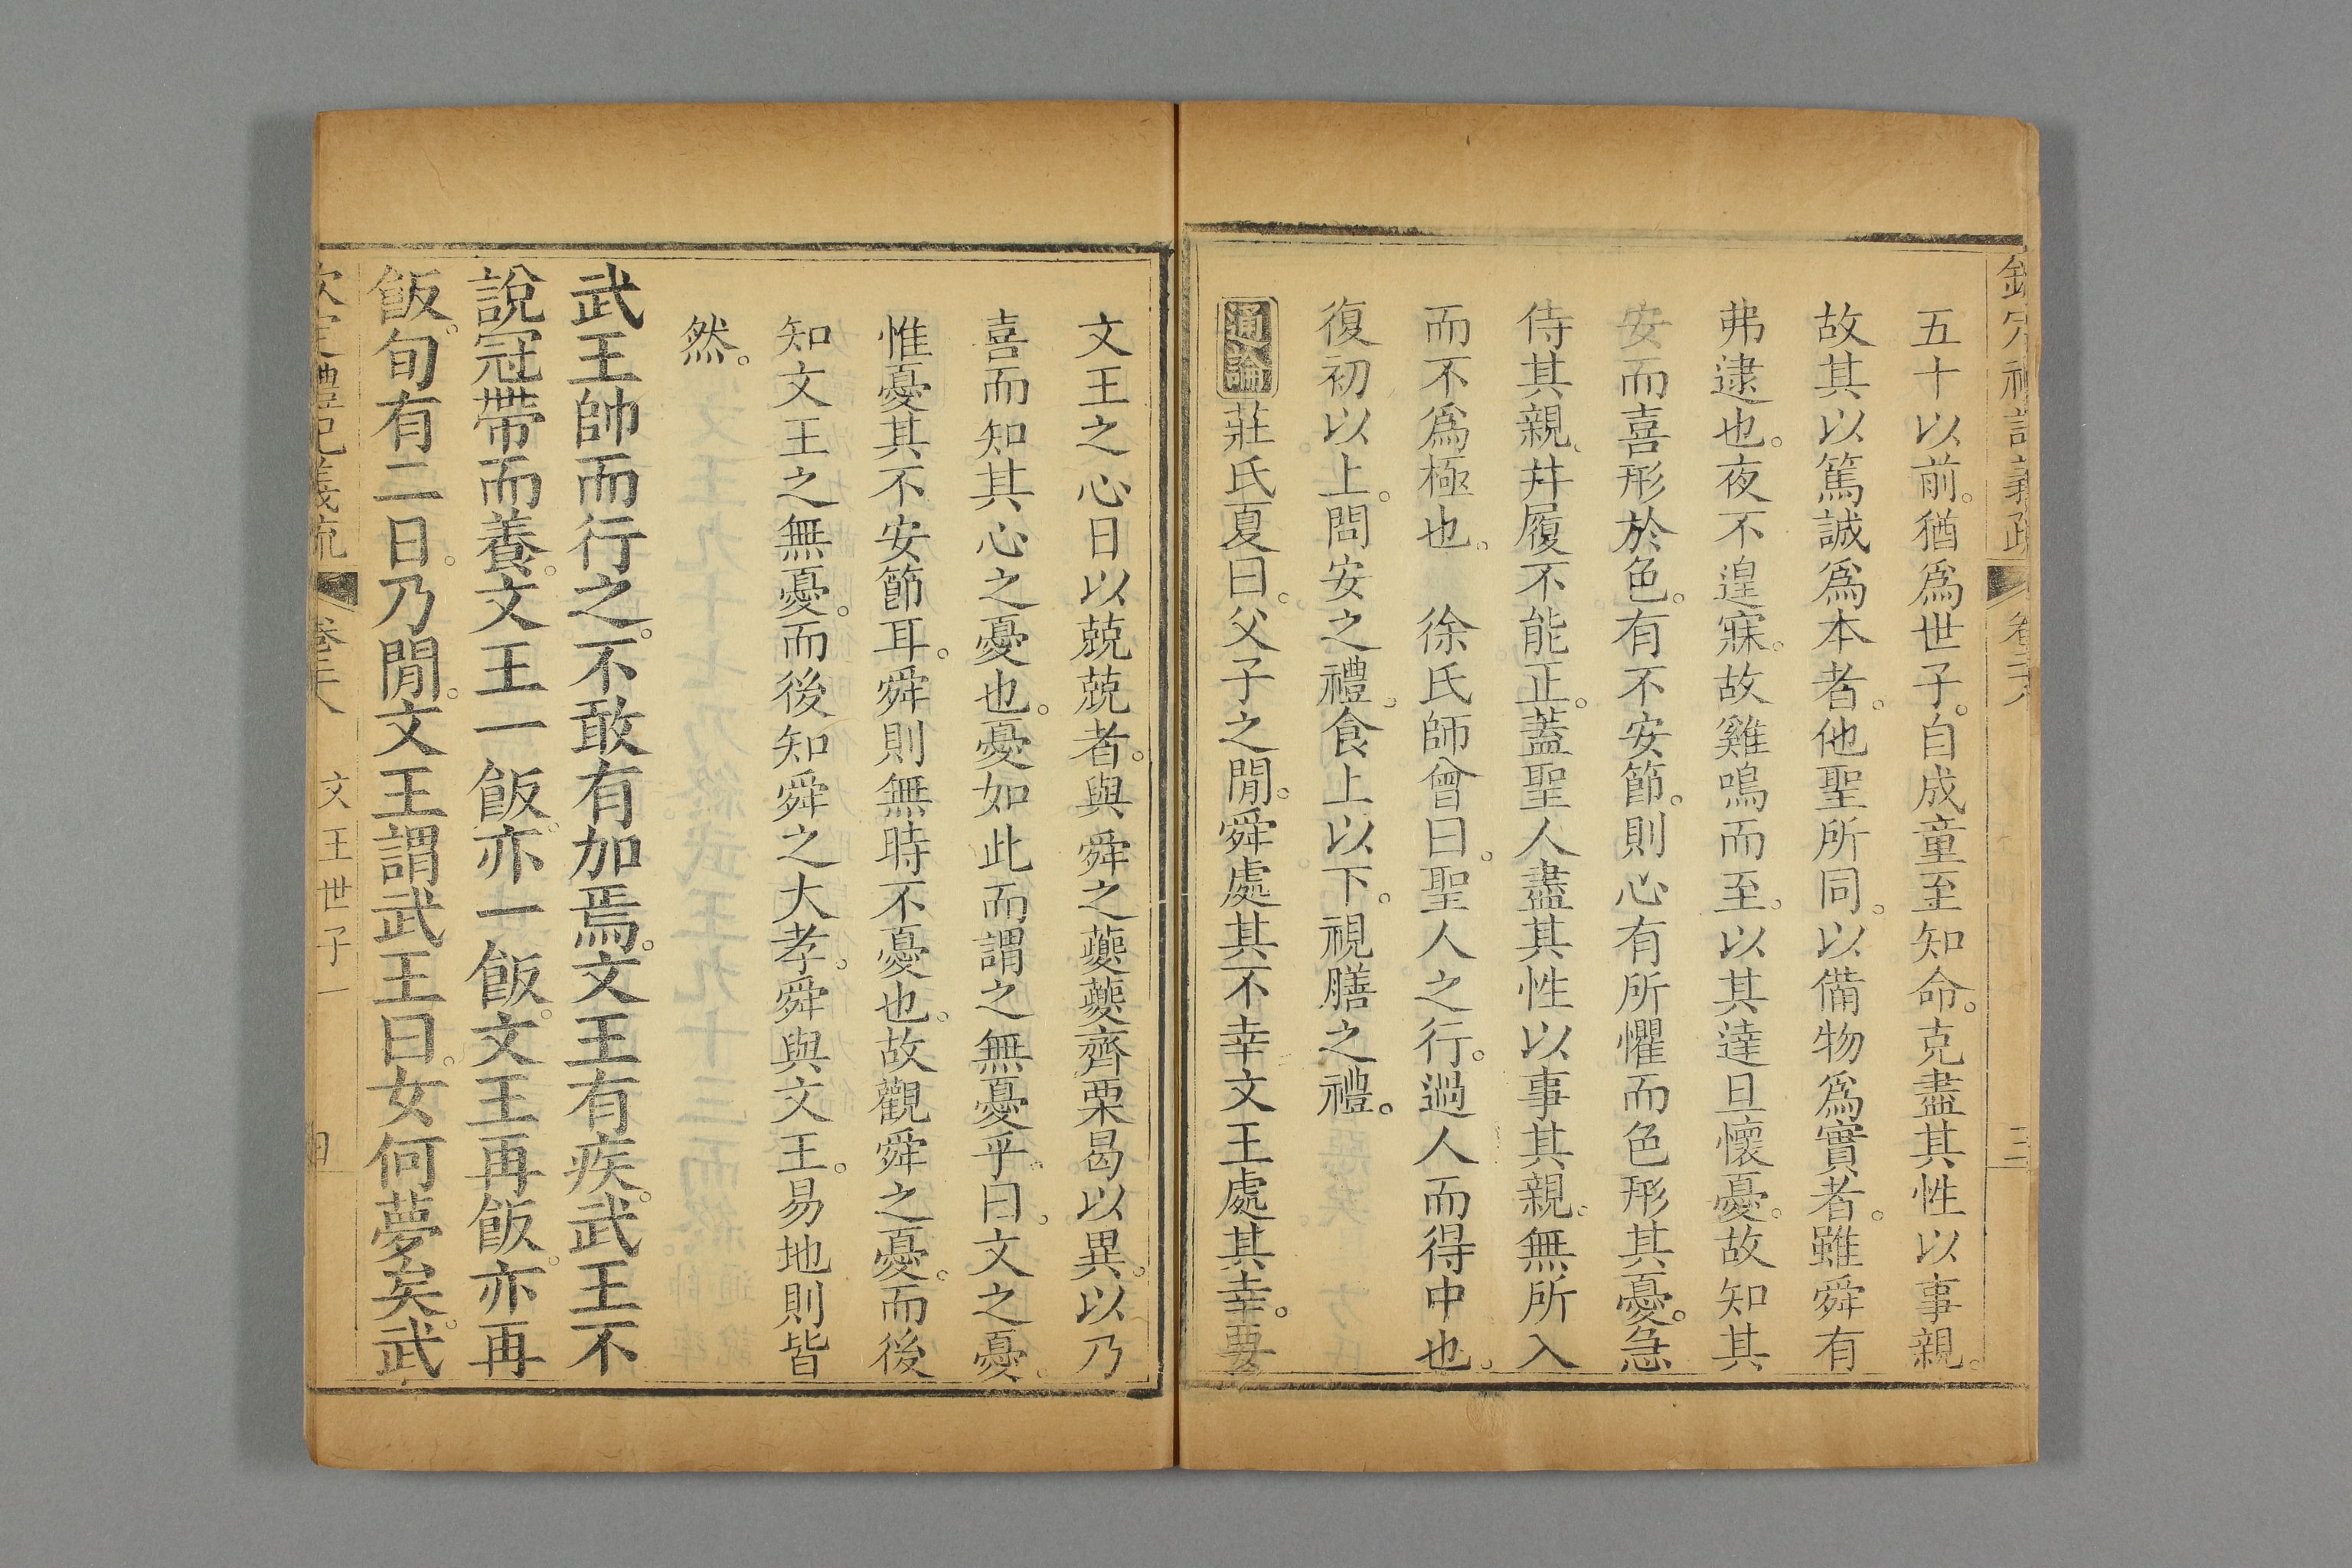 五十以前。猶爲世子。自成童至知命。克盡其性以事親。
故其以篤誠爲本者。他聖所同。以備物爲實者。雖舜有
弗逮也。夜不遑寐。故雞鳴而至。以其達旦懷憂。故知其
安而喜形於色。有不安節。則心有所懼而色形其憂。急
侍其親、幷履不能正。蓋聖人盡其性以事其親。無所入
而不爲極也。 徐氏師曾曰。聖人之行。過人而得中也。
復初以上。問安之禮。食上以下。視膳之禮。
通論莊氏夏曰。父子之閒。舜處其不幸文王處其幸。要
文王之心日以兢兢者。與舜之夔夔齊栗曷以異。以乃
喜而知其心之憂也。憂如此而謂之無憂乎。曰。文之憂。
惟憂其不安節耳。舜則無時不憂也。故觀舜之憂。而後
知文王之無憂。而後知舜之大孝。舜與文王。易地則皆
然。
武王帥而行之。不敢有加焉。文王有疾。武王不
說冠帶而養。文王一飯。亦一飯。文王再飯。亦再
飯。旬有二日。乃閒。文王謂武王曰。女何夢矣。武
文王世子一